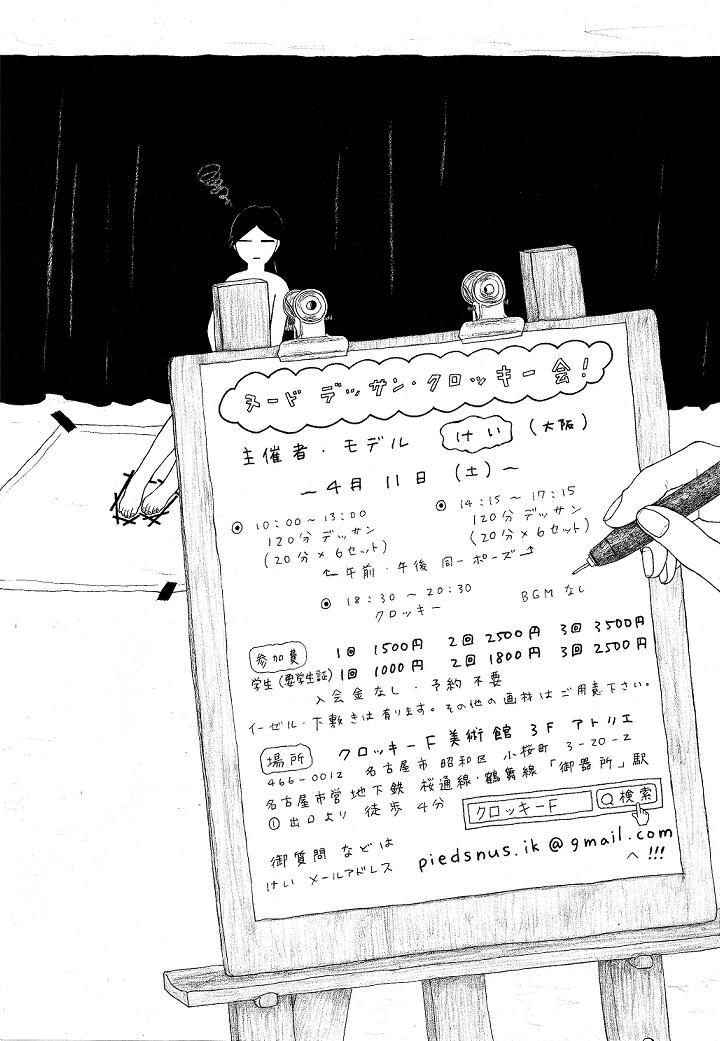 ヌード デッサン・クロッキー 会!
主催者・モデル けい (大阪)
～4月 11日 (土)～
10:00～13:00
120分 デッサン
(20分×6セット)
14:15～17:15
120分 デッサン
(20分×6セット)
午前・午後 同一ポーズ
18:30～20:30
クロッキー
BGM なし
参加費 1回 1500円 2回 2500円 3回 3500円
学生(要学生証) 1回 1000円 2回 1800円 3回 2500円
入会金なし・予約不要
イーゼル・下敷きは有ります。その他の画材はご用意下さい。
場所 クロッキーF美術館 3F アトリエ
466-0012 名古屋市 昭和区 小桜町 3-20-2
名古屋市営地下鉄 桜通線・鶴舞線「御器所」駅
①出口より 徒歩 4分
クロッキーF 検索
御質問 などは
けい メールアドレス piedsnus.ik@gmail.com
へ!!!